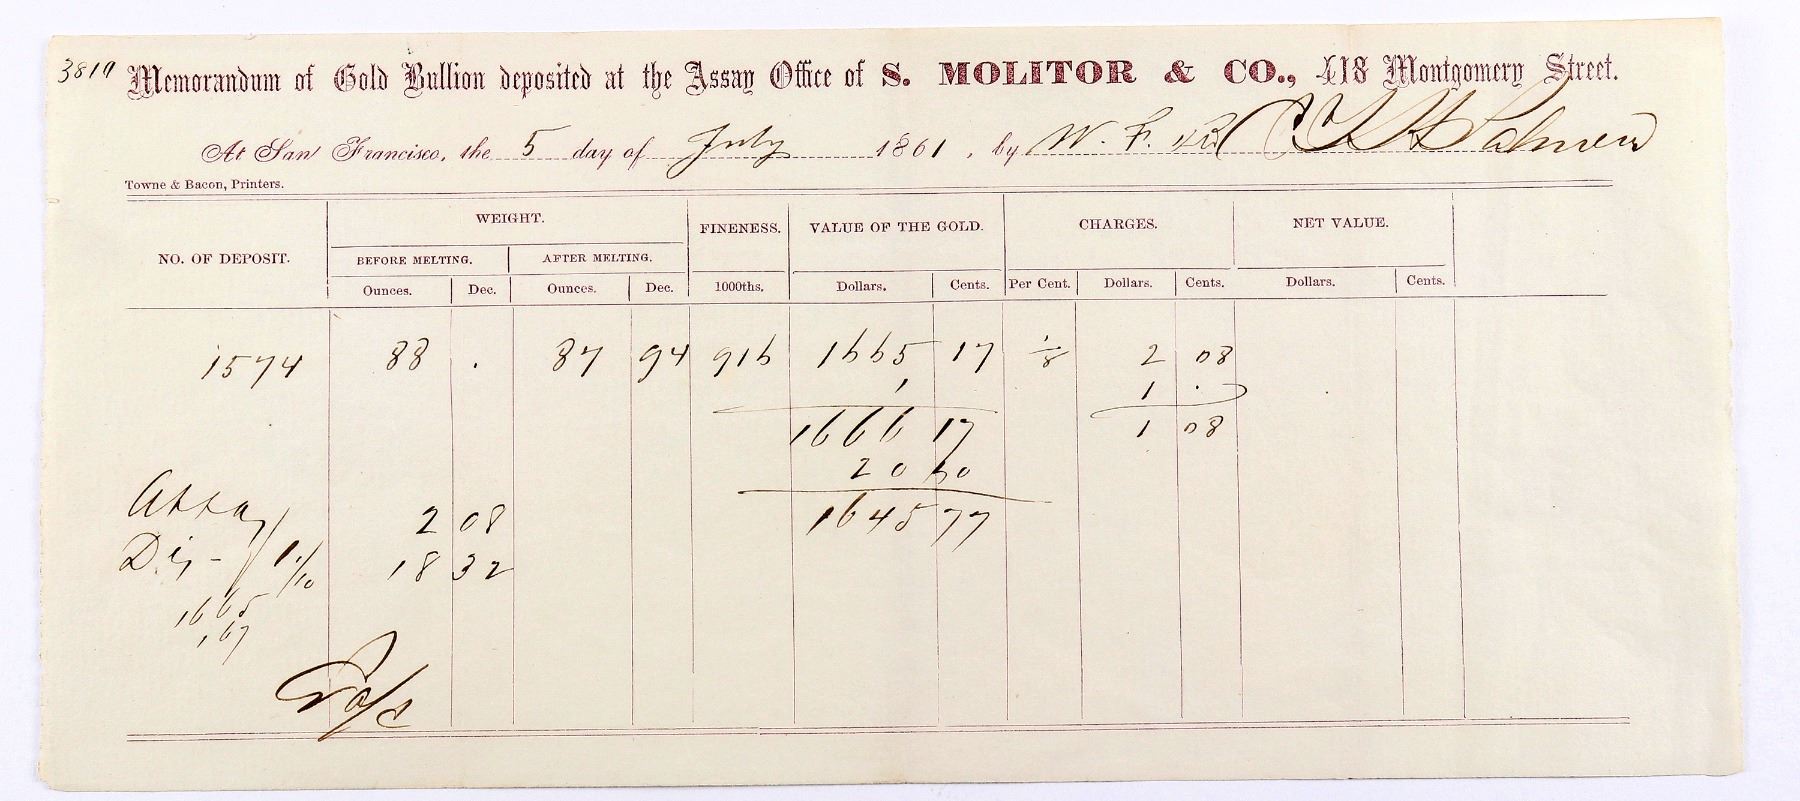 3819 Memorandum of Gold Bullion deposited at the Assay Office of S. MOLITOR & CO., 418 Montgomery Street.
At San Francisco, the 5 day of July 1861, by W. F. &
Towne & Bacon, Printers.
NO. OF DEPOSIT. WEIGHT. FINENESS. VALUE OF THE GOLD. CHARGES. NET VALUE.
BEFORE MELTING. AFTER MELTING.
Ounces. Dec. Ounces. Dec. 1000ths. Dollars. Cents. Per Cent. Dollars. Cents. Dollars. Cents.
1574 88 . 87 94 916 1665 17 1/8 2 08
1 1 .
1666 17 1 08
20 60
Assay 2 08 1645 77
Dis- 1 1/10 18 32
1665
167